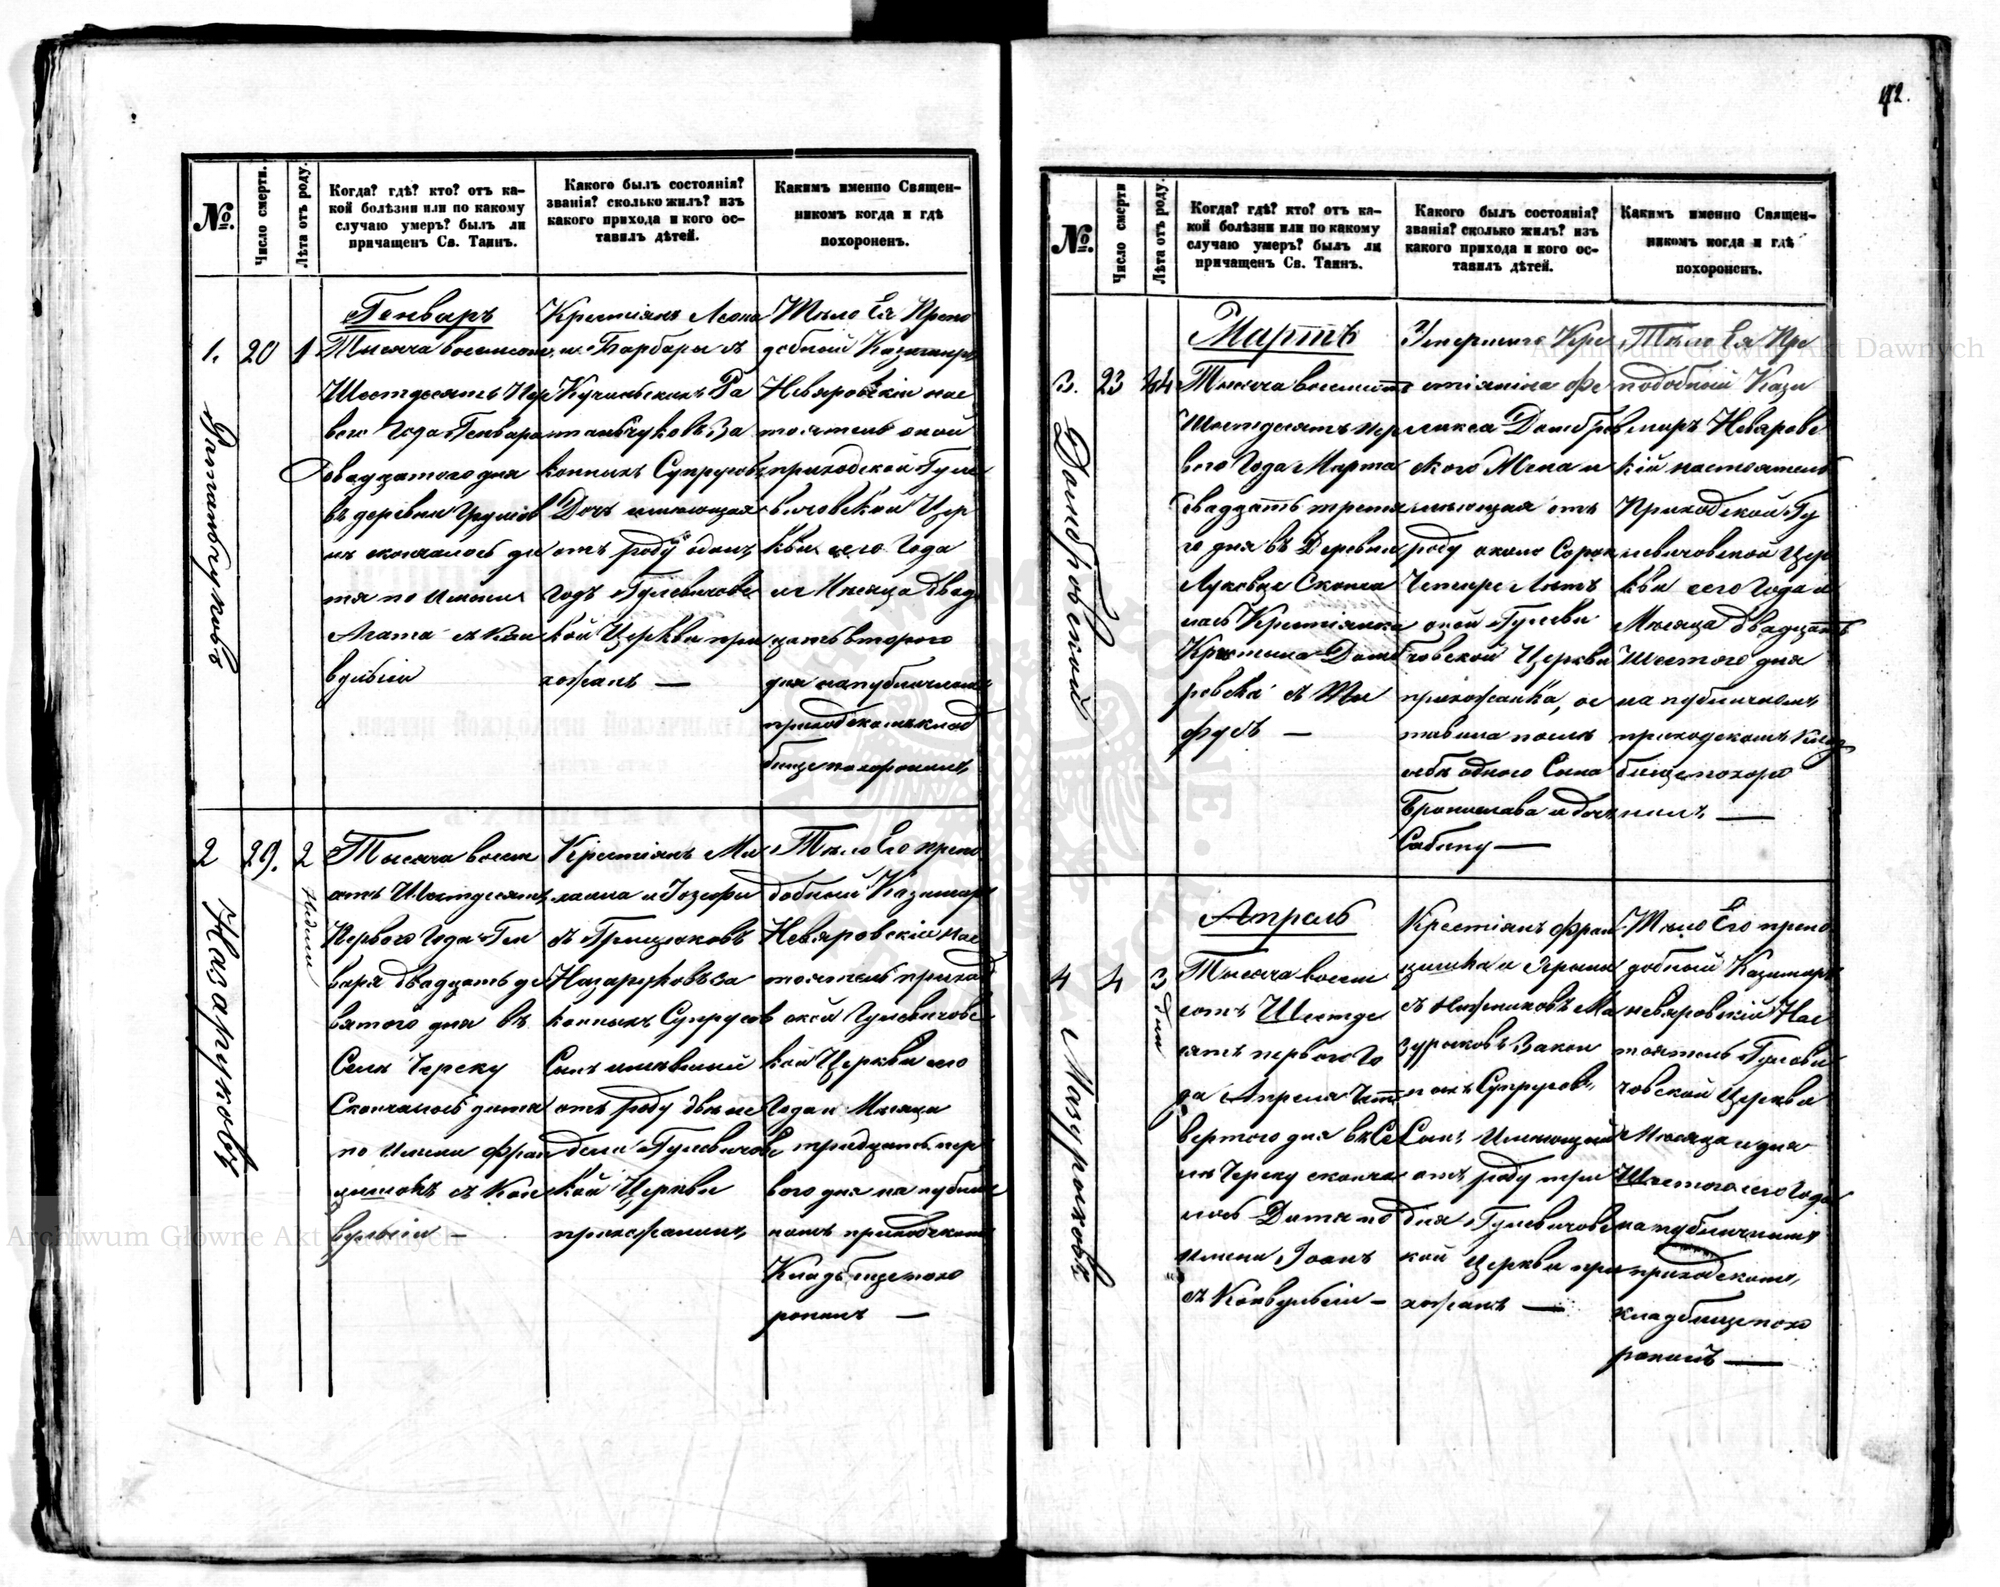 42.
№.
Число смерти.
Лѣта отъ роду.
Когда? гдѣ? кто? отъ ка-
кой болѣзни или по какому
случаю умеръ? былъ ли
причащенъ Св. Таинъ.
Какого былъ состоянія?
званія? сколько жилъ? изъ
какого прихода и кого ос-
тавилъ дѣтей.
Какимъ именно Священ-
никомъ когда и гдѣ
похороненъ.
1.
20
1
Генваръ
Тысяча восемсот
Шестдесятъ Пер
вого Года Генвара
двадцатого дня
въ деревни
скончалось ди
тя по имени
Агата съ Кон
вульсіи
Крестіянъ Леона
и Барбары съ
Кучинскихъ Ра
манчуковъ За
конныхъ Супруговъ
Дочь имеющая
отъ роду одинъ
годъ Гулевичовс
кой Церкви при
хожанъ —
Тѣло Ея Препо
добный Казимиръ
Невяровскій нас
тоятель оной
приходской Гуле
вичовской Цер
кви сего Года
и Мѣсяца двад
цать второго
дня на публичномъ
приходскомъ клад
бище похоронилъ
2
29.
2
Недели
Назаруковъ
Тысяча восем
сотъ Шестдесятъ
Первого Года Ген
варя двадцать де
вятого дня въ
Селѣ Череску
Скончалось дитя
по имени Фран
цишокъ съ Кон
вульсіи —
Крестіянъ Ми
хаила и Іозефи
съ Грицюковъ
Назаруковъ За
конныхъ Супругов
Сынъ имѣвшій
отъ роду двѣ не
дели Гулевичовс
кой Церкви
прихожанинъ
Тѣло Его препо
добный Казимиръ
Невяровскій Нас
тоятель приход
ской Гулевичовс
кой Церкви сего
Года и Мѣсяца
тридцать пер
вого дня на публич
номъ приходскомъ
Кладбище похо
ронилъ —
№.
Число смерти
Лѣта отъ роду.
Когда? гдѣ? кто? отъ ка-
кой болѣзни или по какому
случаю умеръ? былъ ли
причащенъ Св. Таинъ.
Какого былъ состоянія?
званія? сколько жилъ? изъ
какого прихода и кого ос-
тавилъ дѣтей.
Какимъ именно Священ-
никомъ когда и гдѣ
похороненъ.
3.
23
44
Домбровскій
Мартъ
Тысяча восемсотъ
Шестдесятъ пер
вого Года Марта
двадцать треть
го дня въ Деревни
Луковце Сконча
лась Крестіянка
Кристина Домб
ровска съ Ти
фусъ —
Умершого Кре
стіянина Фе
ликса Домбров
ского Жена и
меющая отъ
роду около Сорок
Четыре Лѣтъ
оной Гулеви
човской Церкви
прихожанка, ос
тавила послѣ
себѣ одного Сына
Бронислава и дочь
Сабину —
Тѣло Ея Пре
подобный Кази
миръ Невяровс
кій настоятель
Приходской Гу
левичовской Цер
кви сего Года и
Мѣсяца двадцать
Шестого дня
на публичномъ
приходскомъ Клад
бище похоро
нилъ —
4
4
3
дни
Мазуроковъ
Апрель
Тысяча восем
сотъ Шестде
сятъ первого Го
да Апреля Чет
вертого дня въ Се
лѣ Череску сконча
лось Дитя по
имени Іоанъ
съ Конвульсіи —
Крестіянъ Фран
цишка и
съ Ма
зуроковъ Закон
ныхъ Супруговъ
Сынъ Имеющій
отъ роду три
дня Гулевичовс
кой Церкви при
хожанъ —
Тѣло Его препо
добный Казимиръ
Невяровскій Нас
тоятель Гулеви
човской Церкви
Мѣсяца и дня
Шестого сего Года
на публичномъ
приходскомъ
кладбище похо
ронилъ —
Archiwum Główne Akt Dawnych
Archiwum Główne Akt Dawnych